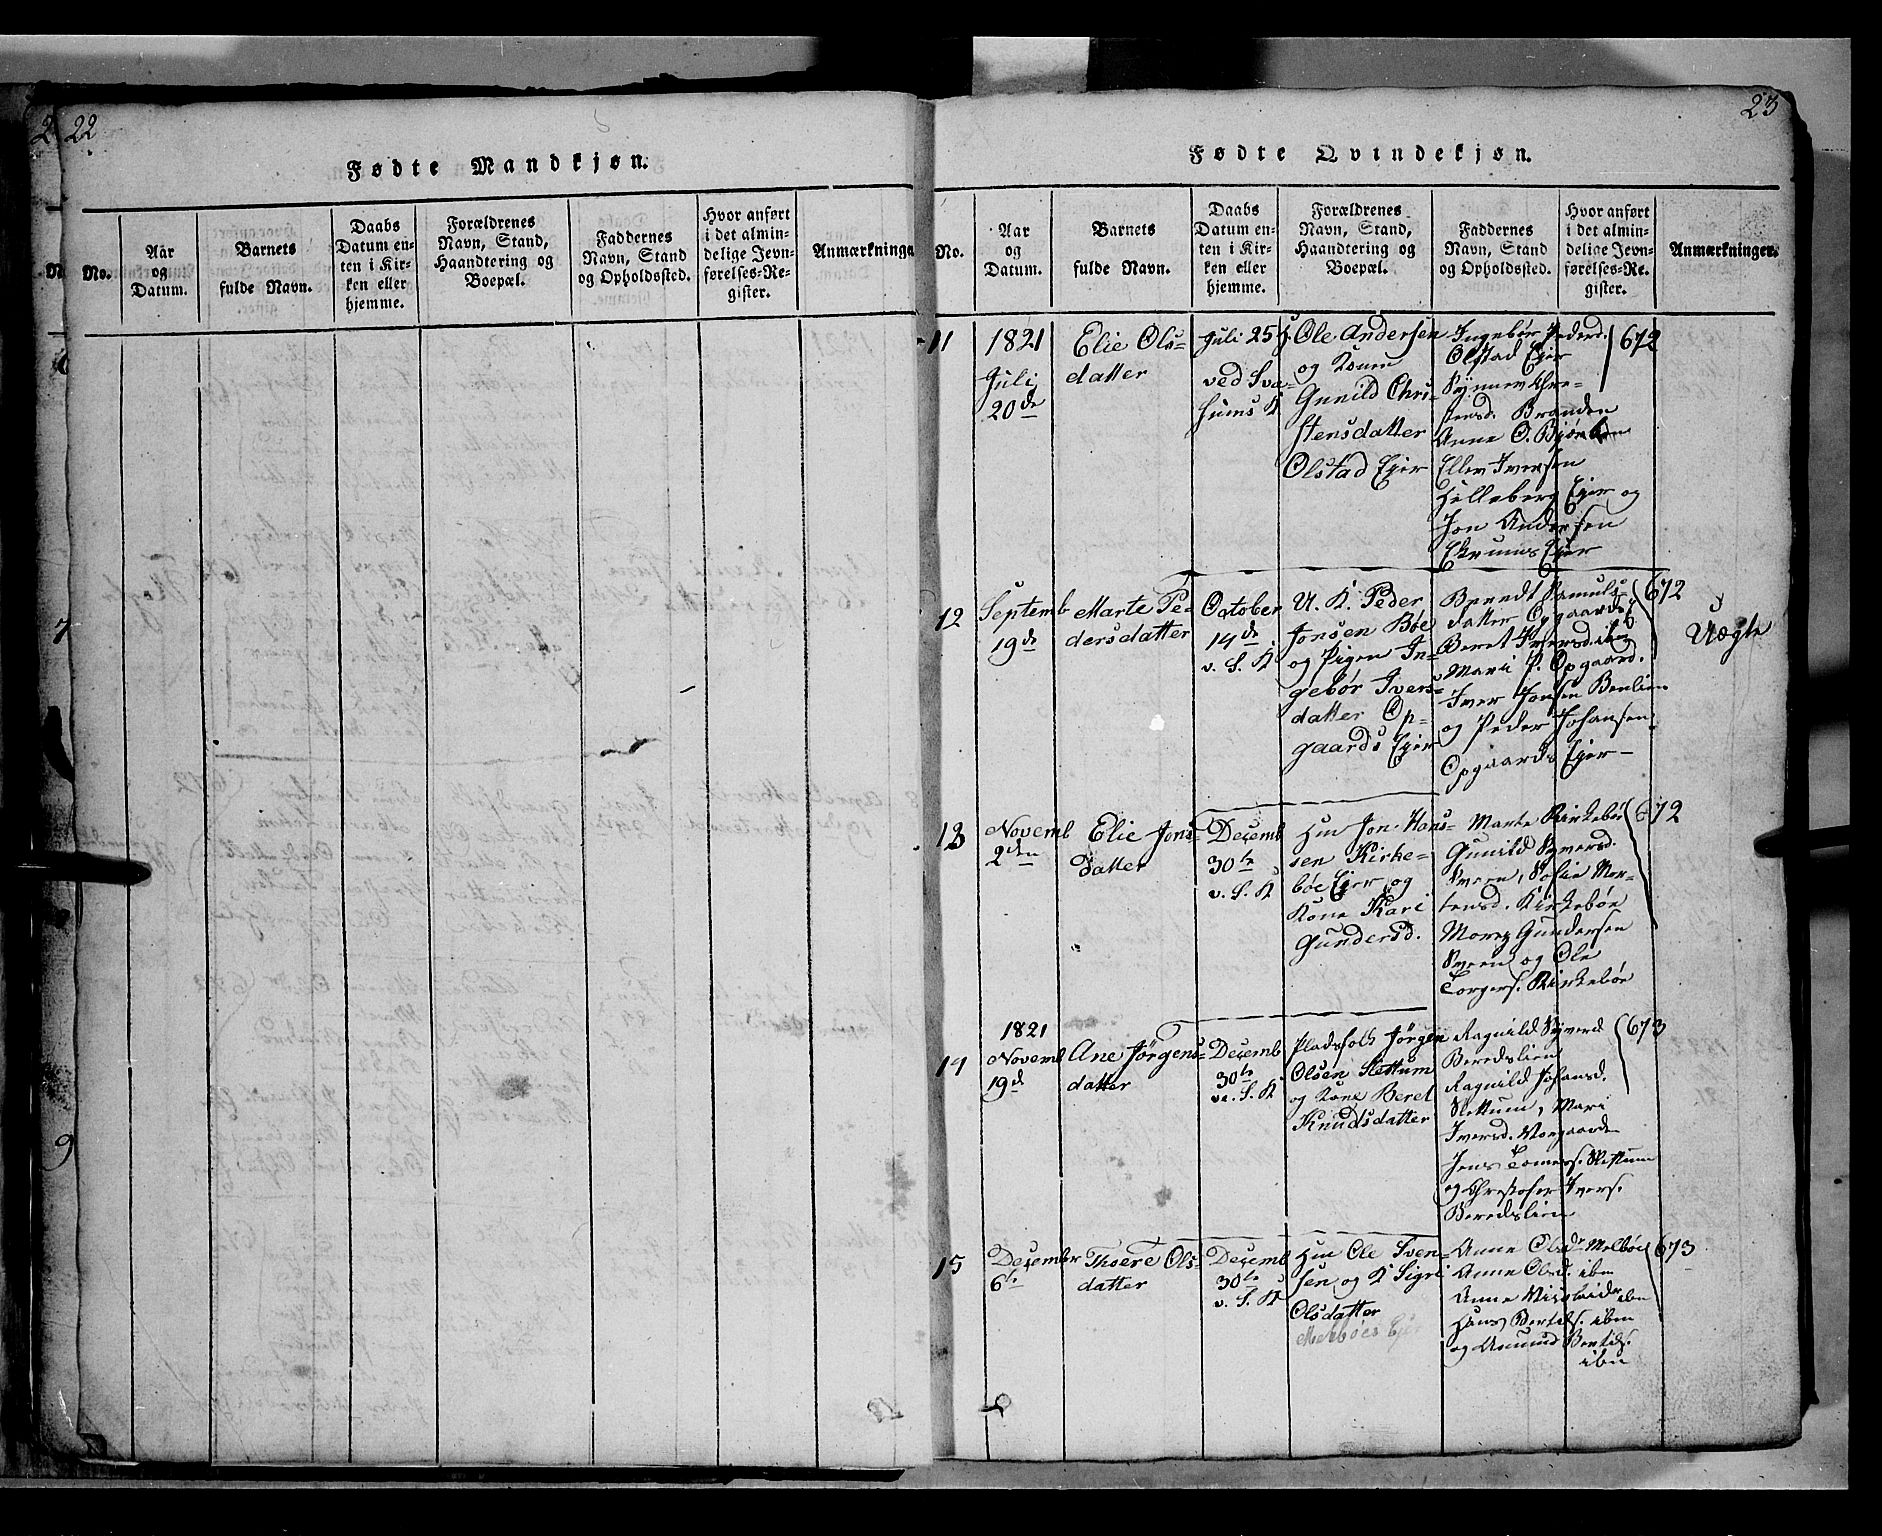 22
Fødte Mandkjøn.
No.
Aar
og
Datum.
Barnets
fulde Navn.
Daabs
Datum en-
ten i Kir-
ken eller
hjemme.
Forældrenes
Navn, Stand,
Haandtering og
Boepæl.
Faddernes
Navn, Stand
og Opholdssted.
Hvor anført
i det almin-
delige Jevn-
førelses-Re-
gister.
Anmærkninge
23
Fødte Qvindekjøn.
No.
Aar
og
Datum.
Barnets
fulde Navn.
Daabs
Datum en-
ten i Kir-
ken eller
hjemme.
Forældrenes
Navn, Stand,
Haandtering og
Boepæl.
Faddernes
Navn, Stand
og Opholdssted.
Hvor anført
i det almin-
delige Jevn-
førelses-Re-
gister.
Anmærkninger.
11
1821
Juli
20de
Elie Ols-
datter
Juli 25
ved Sva-
hums K
Ole Andersen
og Kone
Gunild Chri-
stensdatter
Olstad Eier
Ingebør Pedersd.
Olstad Eier
Synnev Chre-
stensd. Branden
Anne O.
Ellev Iversen
Hilleberg Eier og
Jon Andersen
Eier
672
12
Septemb
19de
Marte Pe-
dersdatter
October
14de
v. S. K
U. K. Peder
Jonsen Bøe
og Pigen In-
gebør Ivers-
datter Op-
gaards Eier
Berendt Samuls-
datter Opgaards
Beret Iversd. ibid
Mari P. Opgaard.
Iver Jonsen Benlien
og Peder Johansen
Opgaards Eier
672
Uægte
13
Novemb
2den
Elie Jons-
datter
Decemb
30te
v. S. K
Hm Jon Hans-
sen Kirke-
bøe Eier og
Kone Kari
Gundersd.
Marte Kirkebøe
Gunild Syversd.
Sveen, Sofie Mor-
tensd. Kirkebøe
Gundersen
Sveen og Ole
Torgers. Kirkebøe
672
14
1821
Novemb
19d
Ane Jørgens-
datter
Decemb
30te
ve. S. K
Pladsfolk Jørgen
Olsen Slettum
og Kone Beret
Knudsdatter
Ragnild Syverd
Beredslien
Ragnild Johansd.
Slettum, Mari
Iversd.
Jens Tomers. Slettum
og Christofer Ivers.
Beredslien
673
15
Decembr
6te
Thoere Ols-
datter
Decemb
30te
v. S. K
Hm Ole Sven-
sen og K Sigri
Olsdatter
Melbøes Eier
Anne Olsdr Melbøe
Anne Olsd. ibm
Anne ibm
Hans Bertels. ibm
og Amund Bertels.
ibm
673